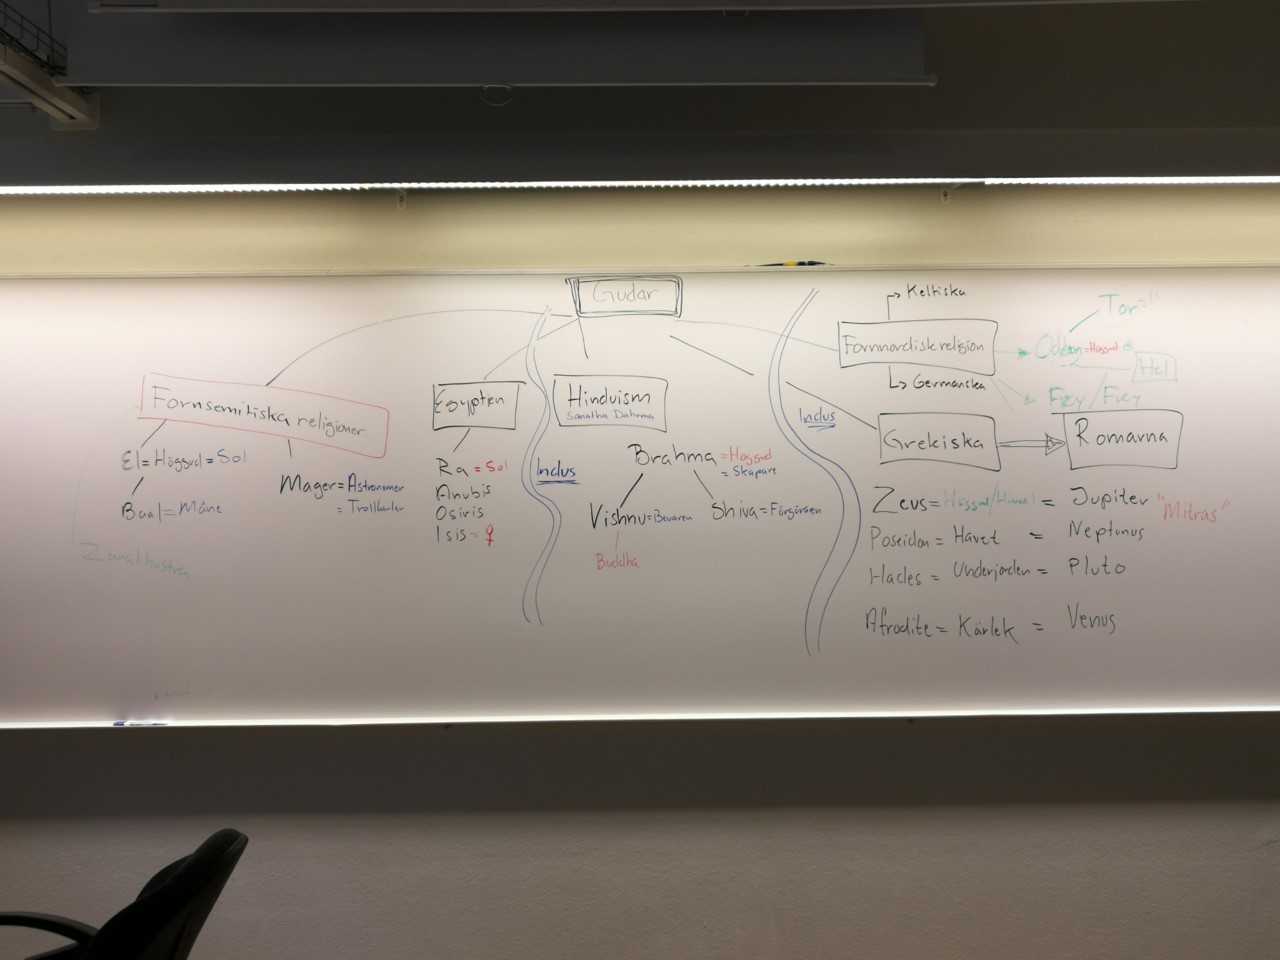 Gudar
Fornsemitiska religioner
El=Högsgud=Sol
Baal=Måne
Mager=Astronomer
=Trollkarlar
Zarathustra
Egypten
Ra=Sol
Anubis
Osiris
Isis=♀
Indus
Hinduism
Sanatha Daharma
Brahma=Högsgud
=Skapare
Vishnu=Bevaren
Shiva=Förgören
Buddha
Indus
Keltiska
Fornnordisk religion
Germanska
Tor="
=Högsgud
Hel
Frey/Frey
Grekiska
Romarna
Zeus=Högsgud/Himmel=Jupiter "Mitras"
Poseidon=Havet=Neptunus
Hades=Underjorden=Pluto
Afrodite=Kärlek=Venus